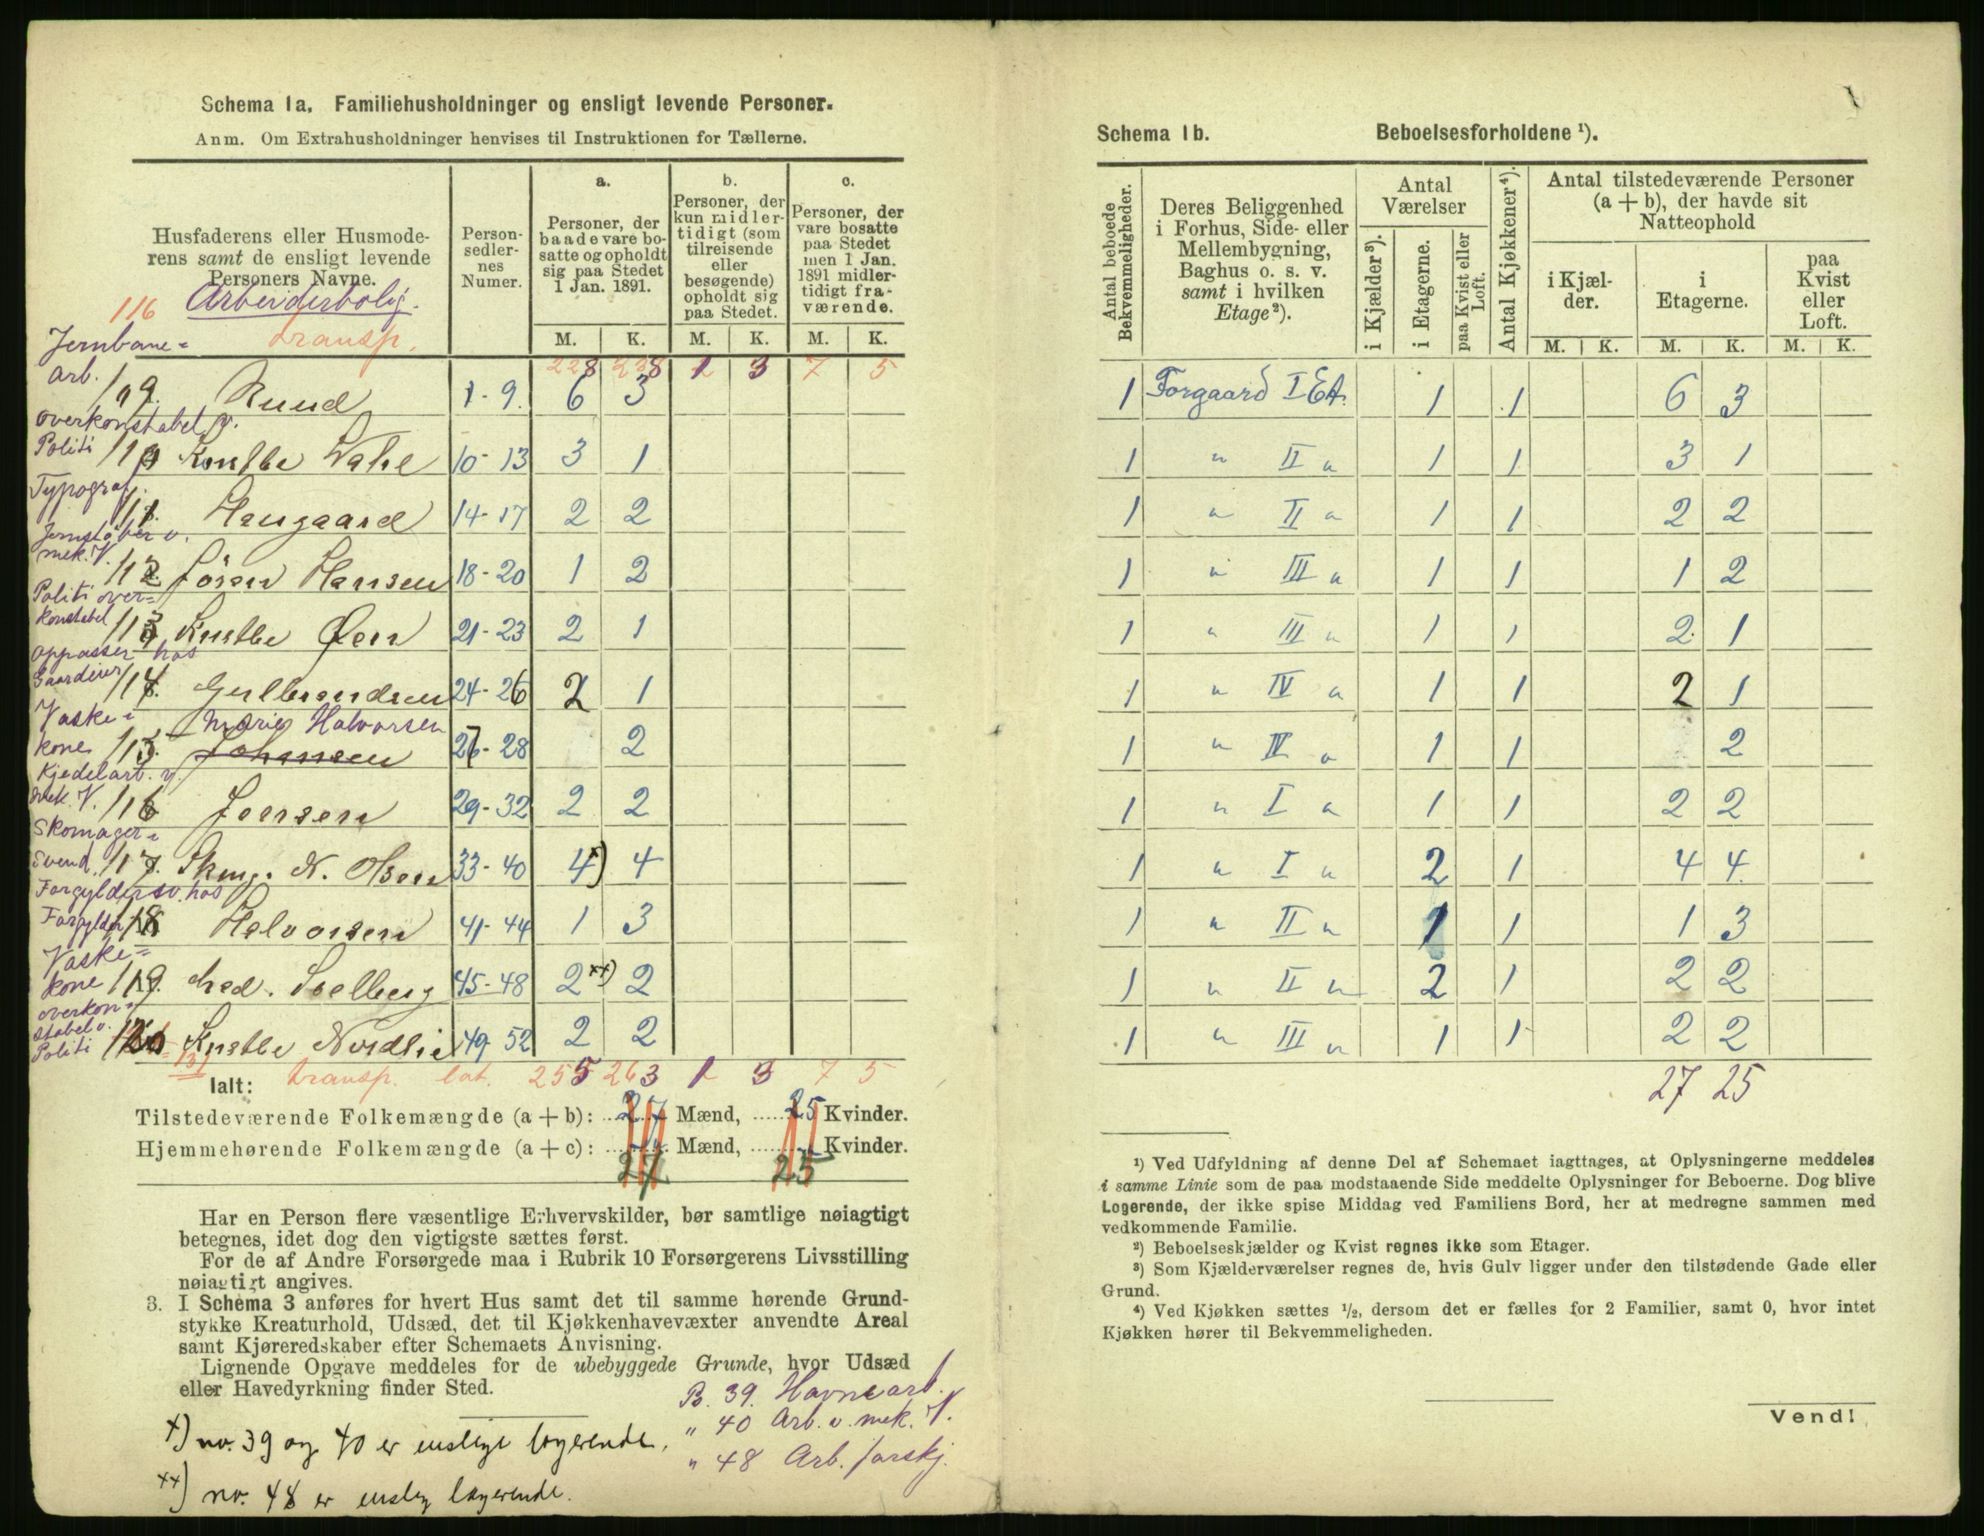 Schema 1a. Familiehusholdninger og ensligt levende Personer.
Anm. Om Extrahusholdninger henvises til Instruktionen for Tællerne.
Husfaderens eller Husmode-
rens samt de ensligt levende
Personers Navne.
Person-
sedler-
nes
Numer.
a.
Personer, der
baade vare bo-
satte og opholdt
sig paa Stedet
1 Jan. 1891.
b.
Personer, der
kun midler-
tidigt (som
tilreisende
eller
besøgende)
opholdt sig
paa Stedet.
c.
Personer, der
vare bosatte
paa Stedet
men 1 Jan.
1891 midler-
tidigt fra-
værende.
M. K. M. K. M. K.
116 Arbeiderbolig.
transp. 228 238 1 3 7 5
Jernbane=
arb. 109. Ruud 1-9. 6 3
overkonstabel v.
Politi 110 Konstbe Dahl 10-13 3 1
Typograf. 111. Haugaard 14-17 2 2
Jernstøber v.
mek. V. 112. Jörgen Hansen 18-20 1 2
Politi over=
konstabel 113 Knstbe Øen 21-23 2 1
oppasser hos
Gaardeier 114. Gulbrandsen 24-26 2 1
Vaske=
kone 115. Marie Halvorsen
Johansen 27-28 2
Kjedelarb. v.
mek. V. 116 Jensen 29-32 2 2
Skomager=
svend. 117. Skmg. N. Olsen 33-40 4 ×) 4
Forgyldersv. hos
Forgylder 118 Halvorsen 41-44 1 3
Vaske=
kone 119. Mad. Solberg 45-48 2 ××) 2
overkon=
stabel v.
Politi 120 Knstbe Nordlie 49-52 2 2
131
Ialt: transp. lat. 255 263 1 3 7 5
Tilstedeværende Folkemængde (a + b): 27 Mænd, 25 Kvinder.
Hjemmehørende Folkemængde (a + c): 27 Mænd, 25 Kvinder.
Har en Person flere væsentlige Erhvervskilder, bør samtlige nøiagtigt
betegnes, idet dog den vigtigste sættes først.
For de af Andre Forsørgede maa i Rubrik 10 Forsørgerens Livsstilling
nøiagtigt angives.
3. I Schema 3 anføres for hvert Hus samt det til samme hørende Grund-
stykke Kreaturhold, Udsæd, det til Kjøkkenhavevæxter anvendte Areal
samt Kjøreredskaber efter Schemaets Anvisning.
Lignende Opgave meddeles for de ubebyggede Grunde, hvor Udsæd
eller Havedyrkning finder Sted.
×) no. 39 og 40 er enslige logerende.
××) no. 48 er enslig logerende.
P. 39. Havnearb.
" 40 Arb. v. mek. V.
" 48 Arb. forskj.
Schema 1b. Beboelsesforholdene ¹).
Antal beboede
Bekvemmeligheder.
Deres Beliggenhed
i Forhus, Side- eller
Mellembygning,
Baghus o. s. v.
samt i hvilken
Etage²).
Antal
Værelser
i Kjælder³).
i Etagerne.
paa Kvist eller
Loft.
Antal Kjøkkener⁴).
Antal tilstedeværende Personer
(a + b), der havde sit
Natteophold
i Kjæl-
der.
i
Etagerne.
paa
Kvist
eller
Loft.
M. K. M. K. M. K.
1 Forgaard I Et. 1 1 6 3
1 " II " 1 1 3 1
1 " II " 1 1 2 2
1 " III " 1 1 1 2
1 " III " 1 1 2 1
1 " IV " 1 1 2 1
1 " IV " 1 1 2
1 " I " 1 1 2 2
1 " I " 2 1 4 4
1 " II " 1 1 1 3
1 " II " 2 1 2 2
1 " III " 1 1 2 2
27 25
¹) Ved Udfyldning af denne Del af Schemaet iagttages, at Oplysningerne meddeles
i samme Linie som de paa modstaaende Side meddelte Oplysninger for Beboerne. Dog blive
Logerende, der ikke spise Middag ved Familiens Bord, her at medregne sammen med
vedkommende Familie.
²) Beboelseskjælder og Kvist regnes ikke som Etager.
³) Som Kjælderværelser regnes de, hvis Gulv ligger under den tilstødende Gade eller
Grund.
⁴) Ved Kjøkken sættes ½, dersom det er fælles for 2 Familier, samt 0, hvor intet
Kjøkken hører til Bekvemmeligheden.
Vend!